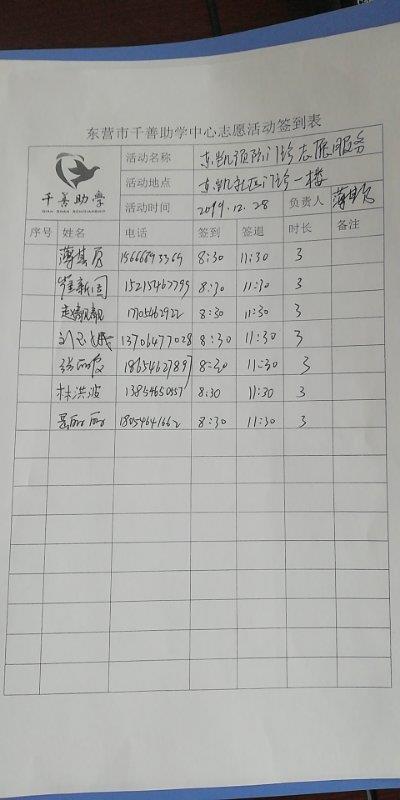 东营市千善助学中心志愿活动签到表
千善助学
QIAN SHAN SCHOLARSHIP
活动名称 东凯预防门诊志愿服务
活动地点 东凯社区门诊一楼
活动时间 2019.12.28 负责人
序号 姓名 电话 签到 签退 时长 备注
8:30 11:30 3
崔新阁 15215467799 8:30 11:30 3
赵靓靓 8:30 11:30 3
13706477028 8:30 11:30 3
张丽霞 18654627897 8:30 11:30 3
林洪波 13854650557 8:30 11:30 3
丽丽 18054641662 8:30 11:30 3